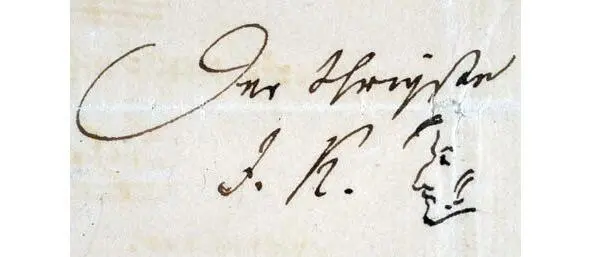 Der Ihrigste
J. K.